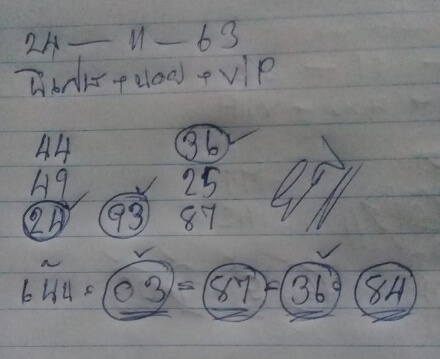 24 — 11 — 63
พิเศษ + ปกติ + VIP
44 36
49 25
24 93 87
เน้น = 03 = 87 = 36 = 84